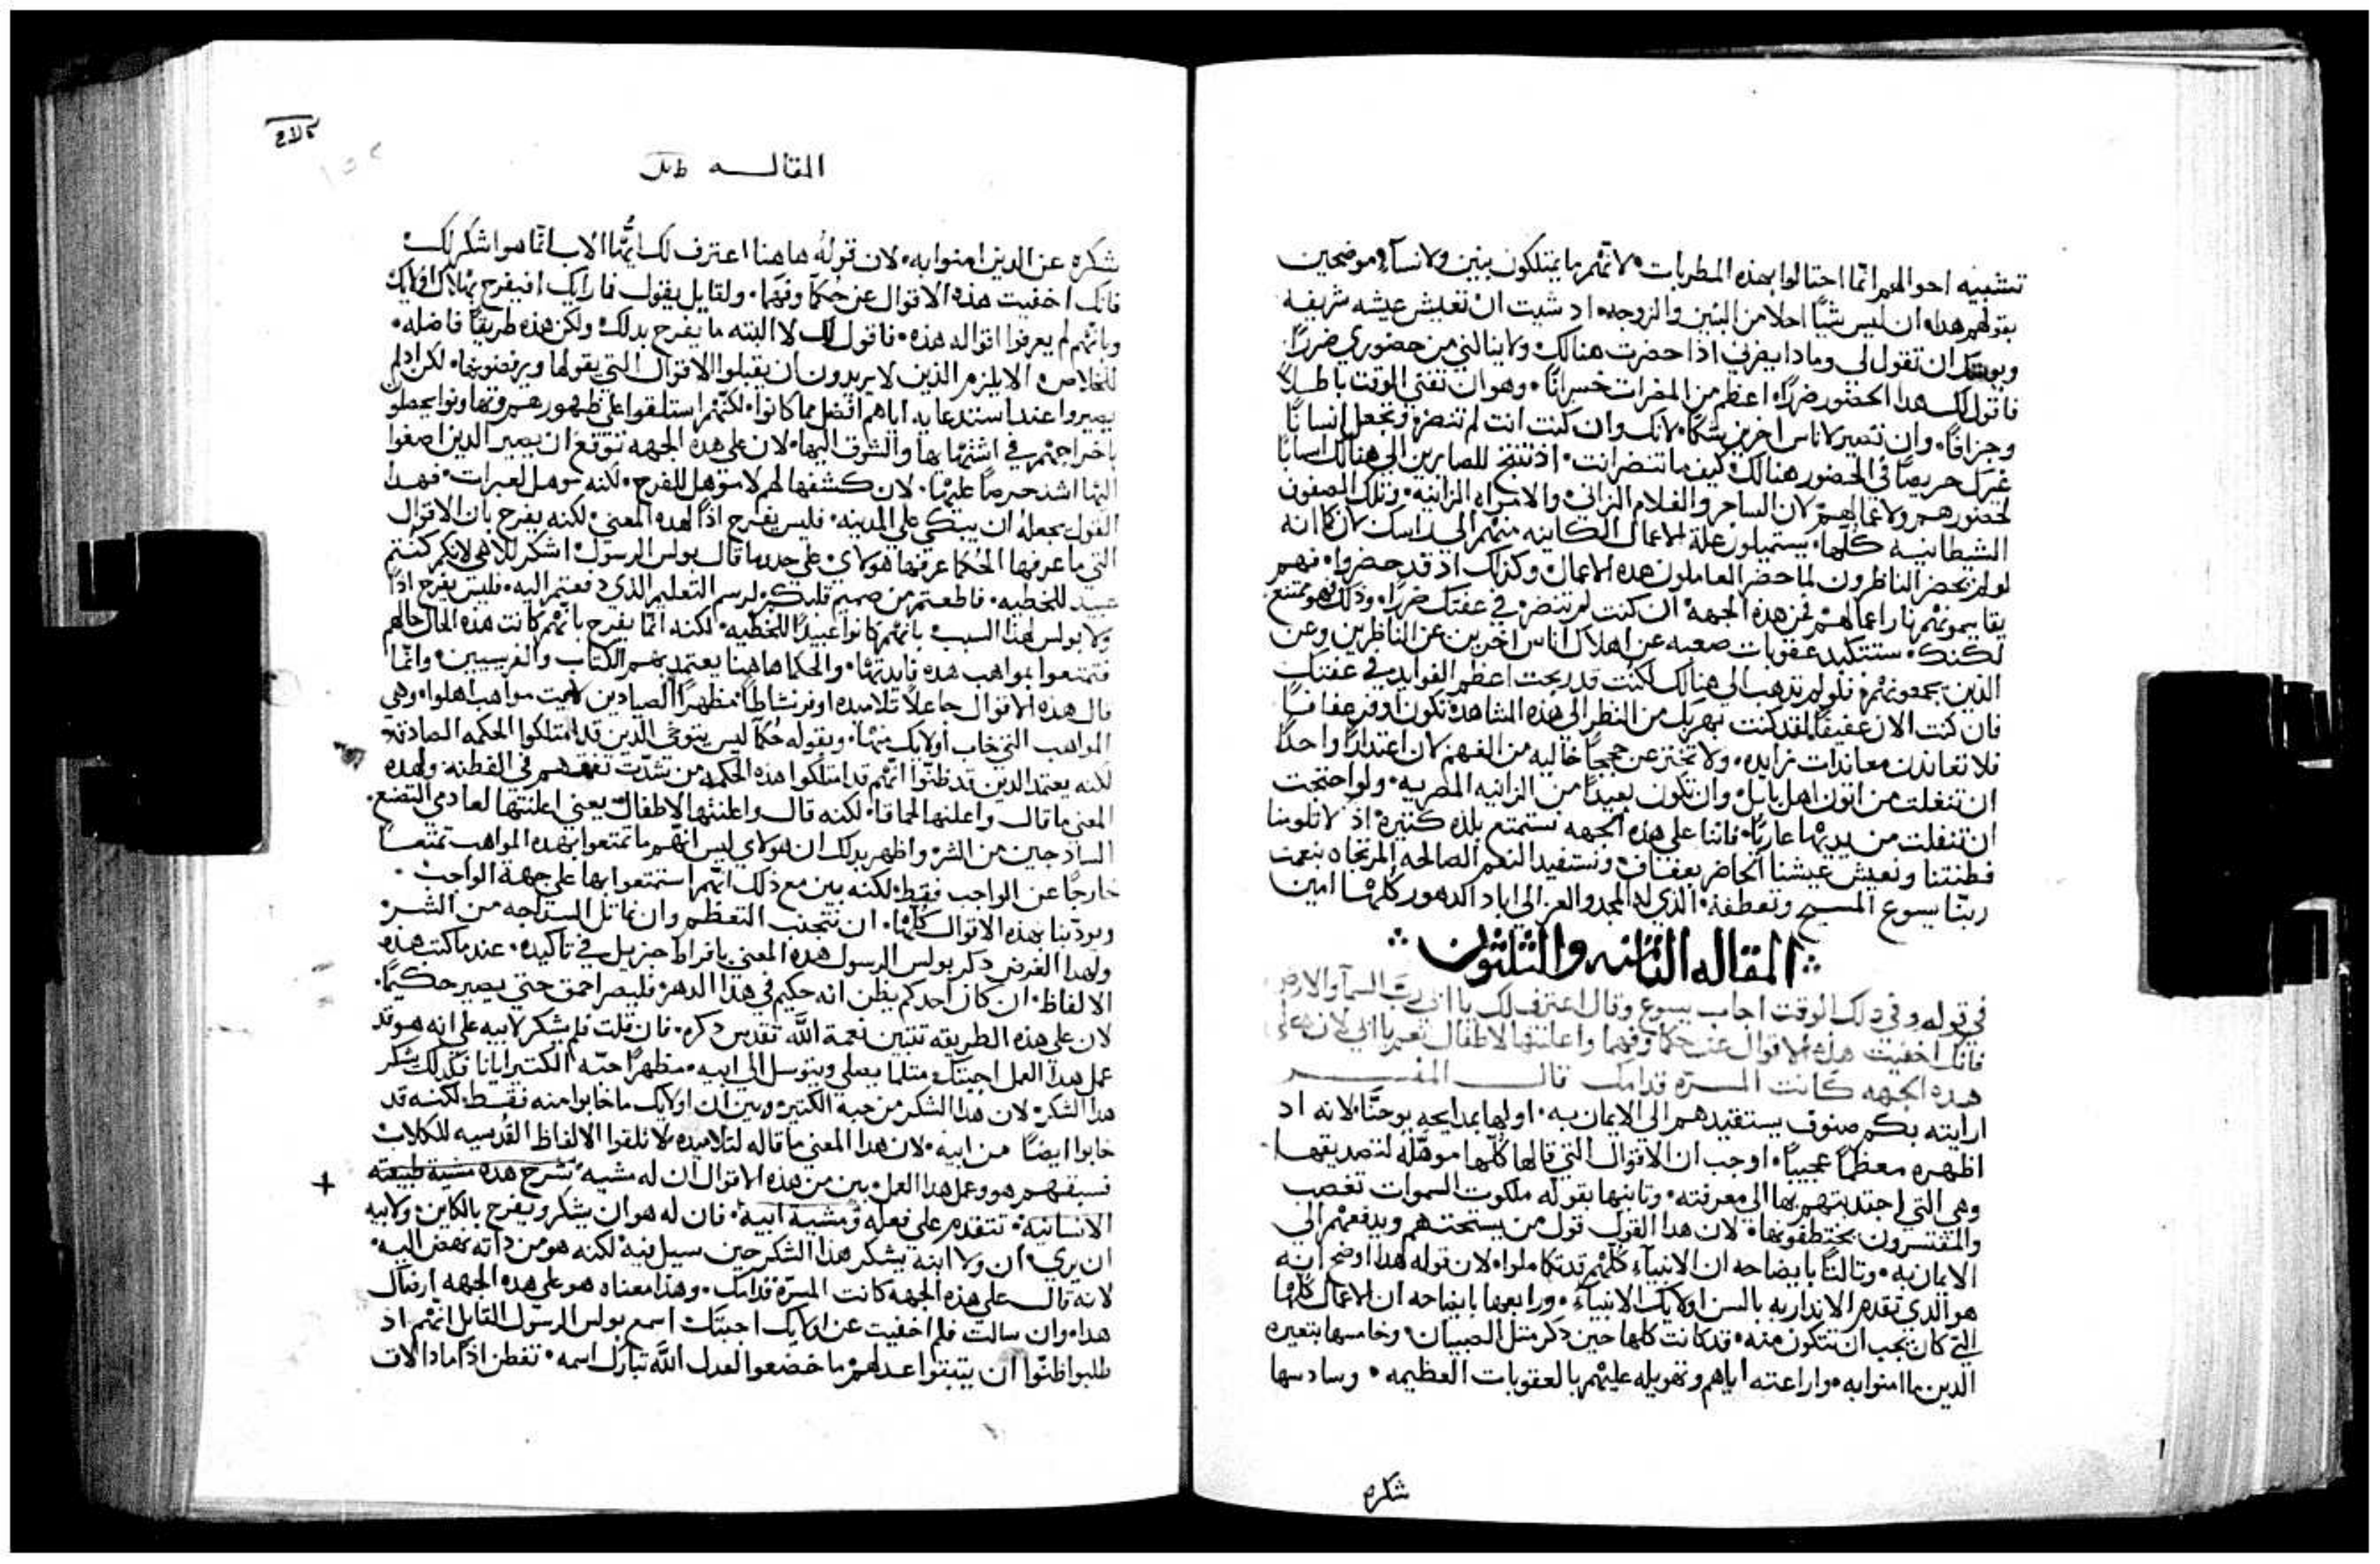 تشبيه احوالهم انما احتالوا بهذه المطربات لانهم ما يمتلكون بنين ولا نسآء موضحين
بقولهم هذا ان ليس شيًا احلا من البنين والزوجه اد شيت ان تعيش عيشه شريفه
ان تقول لي وما دا يضرني اذا حضرت هنالك ولا ينالني من حضوري ضررًا
فاقول لك هدا الحضور ضررًا اعظم من المضرات خسرانًا وهو ان تفني الوقت باطلاً
وجزافًا وان تصير لاناس اخرين شكًا لانك وان كنت انت لم تنضر وتجعل انسانًا
غيرك حريصًا في الحضور هنالك كيف ما تنضر انت اذ تنتج للصايرين الي هنالك اسبابًا
لحضورهم ولاعمالهم لان الساحر والغلام الزاني والامراه الزانيه وتلك الصفون
الشيطانيه كلها يستميلون علة الاعمال الكاينه منهم الي راسك لان كما انه
لو لم يحضر الناظرون لما حضر العاملون هده الاعمال وكذلك اذ قد حضروا فهم
يقاسمونهم نار اعمالهم فمن هذه الجهه ان كنت لم تنضر في عفتك ضررًا وذلك فهو ممتنع
لكنك ستتكبد عقوبات صعبه عن اهلاك اناس اخرين عن الناظرين وعن
الذين يجمعونهم فلو لم تذهب الي هنالك لكنت قد ربحت اعظم الفوايد في عفتك
فان كنت الان عفيفًا لقد كنت بهربك من النظر الي هذه المشاهده تكون اوفر عفافًا
فلا تعاندن معاندات زايده ولا تخترعن حججًا خاليه من الفهم لان اعتدارًا واحدًا
ان تنفلت من اتون اهل بابل وان تكون بعيدًا من الزانيه المصريه ولو احتجت
ان تنفلت من يديها عاريًا فاننا علي هذه الجهه نستمتع بلذه كثيره اذ لا تلومنا
فطنتنا ونعيش عيشنا الحاضر بعفاف ونستفيد النعم الصالحه المرتجاه بنعمة
ربنا يسوع المسيح وتعطفه الذي له المجد والعز الي اباد الدهور كلها امين
المقاله الثامنه والثلثون
في قوله وفي دلك الوقت اجاب يسوع وقال اعترف لك يا ابي رب السمآ والارض
فانك اخفيت هذه الاقوال عن حكما وفهما واعلنتها لاطفال نعم يا ابي لان علي
هده الجهه كانت المسره قدامك قال المفسر
ارايته بكم صنوف يستقيدهم الي الايمان به اولها بمدايحه يوحنا لانه اد
اظهره معظمًا عجيبًا اوجب ان الاقوال التي قالها كلها موهله لتصديقها
وهي التي اجتدبتهم بها الي معرفته وتانيها بقوله ملكوت السموات تغصب
والمقتسرون يختطفونها لان هدا القول قول من يستحتهم ويدفعهم الي
الايمان به وتالتًا بايضاحه ان الانبيآء كلهم قد تكاملوا لان قوله هدا اوضح انه
هو الدي تقدم الاندار به بالسن اولايك الانبيآء ورابعها بايضاحه ان الاعمال كلها
التي كان يجب ان تتكون منه قد كانت كلها حين دكر متل الصبيان وخامسها بتعيره
الدين ما امنوا به واراعته اياهم وتهويله عليهم بالعقوبات العظيمه وسادسها
شكره
المقالــه
شكره عن الدين امنوا به لان قوله هاهنا اعترف لك ايها الاب انما هو اشكر لك
فانك اخفيت هذه الاقوال عن حكمآ وفهمآ ولقايل يقول فما رايك افيفرح بهلاك اولايك
وبانهم لم يعرفوا اقواله هذه فاقول لك لا البته ما يفرح بدلك ولكن هذه طريقًا فاضله
للخلاص الا يلزم الذين لا يريدون ان يقبلوا الاقوال التي يقولها ويرفضونها لكن اد لم
يصيروا عند استدعايه اياهم افضل مما كانوا لكنهم استلقوا علي ظهورهم وتهاونوا يجعلوا
باخراجهم في اشتهايها والشوق اليها لان علي هده الجهه توقع ان يصير الدين اصغوا
اليها اشد حرصًا عليها لان كشفها لهم لا موهل للفرح لكنه موهل لعبرات فهدا
القول يجعله ان يبكي علي المدينه فليس يفرح اذًا لهده المعني لكنه يفرح بان الاقوال
التي ما عرفها الحكما عرفها هولاي علي حدو ما قال بولس الرسول اشكر للاهي لانكم كنتم
عبيد للخطيه فاطعتم من صميم قلبكم لرسم التعليم الذي دفعتم اليه فليس يفرح اذًا
ولا بولس لهذا السبب بانهم كانوا عبيدًا للخطيه لكنه انما يفرح بانهم كانت هذه الحال حالهم
فتمتعوا بمواهب هده فايدتها والحكما هاهنا يعتمد بهم الكتاب والفريسيين وانما
قال هذه الاقوال جاعلاً تلاميده اوفر نشاطًا مظهرًا الصيادين لايت مواهب اهلوا وهي
المواهب التي خاب اولايك منها وبقوله حكمآ ليس يتوخي الدين قد امتلكوا الحكمه الصادقه
لكنه يعتمد الدين قد ظنوا انهم قد امتلكوا هذه الحكمه من تشدّق تفقههم في الفطنه ولهده
المعني ما قال واعلنها لحماقا لكنه قال واعلنتها لاطفال يعني اعلنتها لعادمي التصنع
السادجين من الشر واظهر بدلك ان هولاي ليس انهم ما تمتعوا بهده المواهب تمتعًا
خارجًا عن الواجب فقط لكنه بين مع ذلك انهم استمتعوا بها علي جهة الواجب
ويودّبنا بهذه الاقوال كلها ان نتجنب التعظم وان نماثل السداجه من الشر
ولهدا الغرض دكر بولس الرسول هده المعني بافراط جزيل في تاكيده عند ما كتب هذه
الالفاظ ان كان احدكم يظن انه حكيم في هذا الدهر فليصر احمق حتي يصير حكيمًا
لان علي هذه الطريقه تتبين نعمة الله تقدس دكره فان قلت فلم يشكر لابيه علي انه هو قد
عمل هدا العمل اجبتك مثلما يصلي ويتوسل الي ابيه مظهرًا حبه الكتير ايانا فكذلك شكر
هدا الشكر لان هدا الشكر من حبه الكتير وبين ان اولايك ما خابوا منه فقط لكنه قد
خابوا ايضًا من ابيه لان هدا المعني ما قاله لتلاميده لا تلقوا الالفاظ القدسيه للكلاب
فسبقهم هو وعمل هدا العمل بين من هذه الاقوال ان له مشيه تشرح هده مشية طبيعته
الانسانيه تتقدم علي فعله ومشية ابيه فان له هو ان يشكر ويفرح بالكاين ولابيه
ان يري ان ولا ابنه يشكر هذا الشكر حين سيل فيه لكنه هو من داته نهض اليه
لانه قال علي هذه الجهه كانت المسرّه قدامك وهذا معناه هو علي هده الجهه ارضاك
هدا وان سالت فلم اخفيت عن اولايك اجبتك اسمع بولس الرسول القايل انهم اذ
طلبوا ظنوا ان يثبتوا عدلهم ما خضعوا لعدل الله تبارك اسمه تفطن اذًا ماذا لات